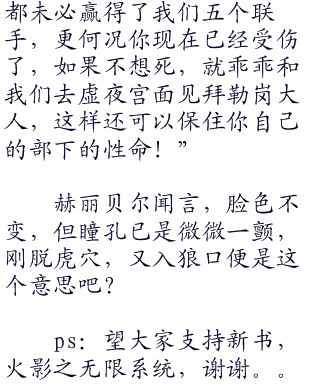 都未必赢得了我们五个联
手，更何况你现在已经受伤
了，如果不想死，就乖乖和
我们去虚夜宫面见拜勒岗大
人，这样还可以保住你自己
的部下的性命！”
赫丽贝尔闻言，脸色不
变，但瞳孔已是微微一颤，
刚脱虎穴，又入狼口便是这
个意思吧？
ps：望大家支持新书，
火影之无限系统，谢谢。。